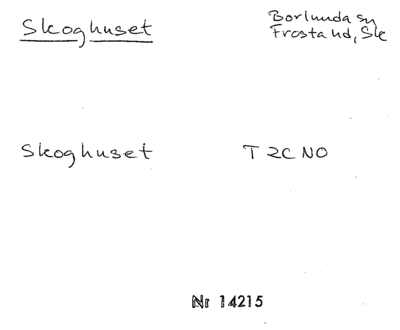 Skoghuset
Borlunda sn
Frosta hd, Sk
Skoghuset T 2C NO
Nr 14215